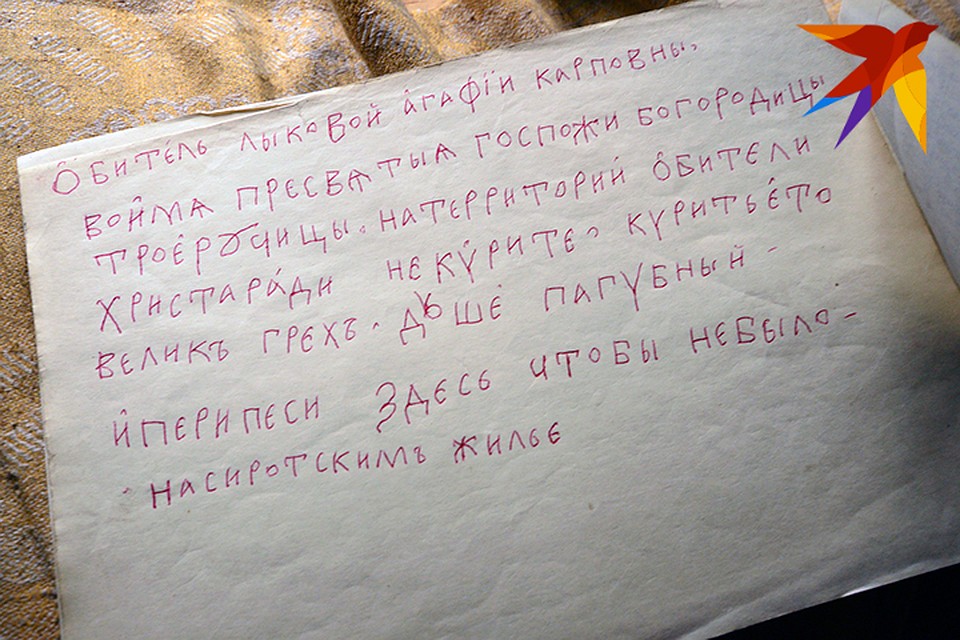 О҆битє́ль лыковой а҆гафїи карповны.
вои҆мѧ прєсвѧтыѧ госпожи богородицы
троє҆рꙋчицы. натєрриторий о҆битєли
христара́ди нєкѵ́ритє. кѵритьє́то
вєликъ грєхъ. дꙋшє пагѵбный -
и҆пєрипєси здєсь чтобы нєбыло -
насиротскимъ жильє